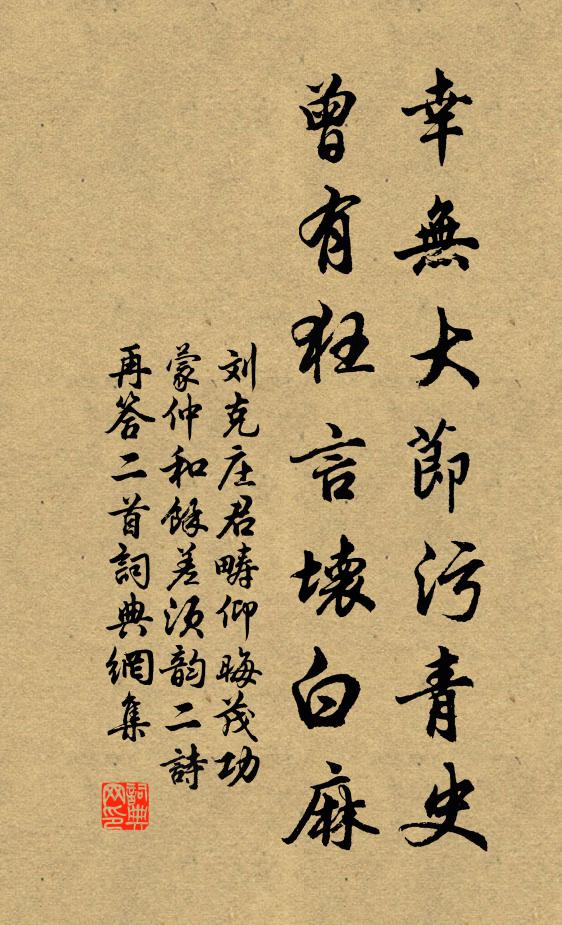 幸無大節污青史
曾有狂言壞白麻
刘克庄君疇仰晦茂功
蒙仲和餘差須韵二詩
再答二首詞典網集
詞典网印